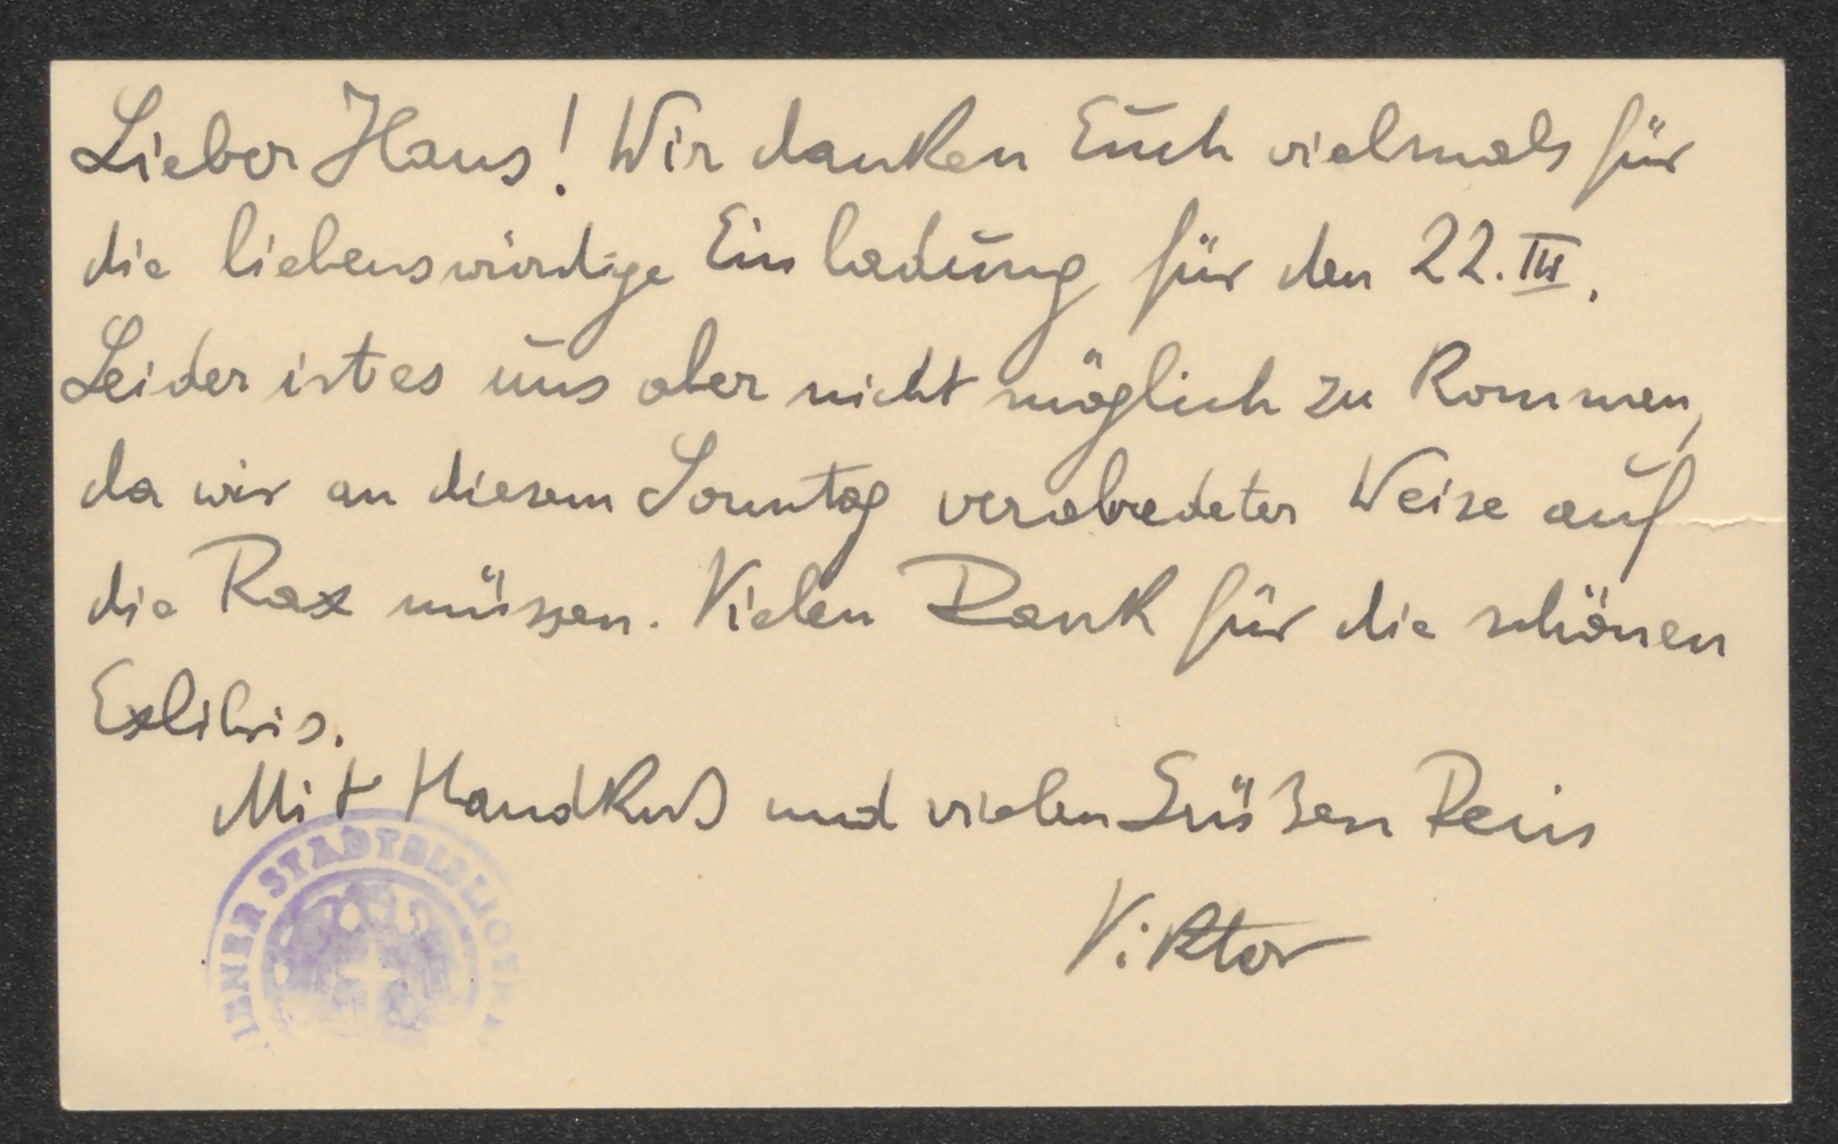 Lieber Hans! Wir danken Euch vielmals für
die liebenswürdige Einladung für den 22. III.
Leider ist es uns aber nicht möglich zu kommen,
da wir an diesem Sonntag verabredeter Weise auf
die Rax müssen. Vielen Dank für die schönen
Exlibris.
Mit Handkuß und vielen Grüßen Dein
Viktor
IENER STADTBIBLIOTHE